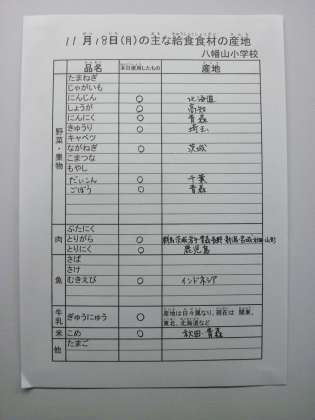 11月18日(月)の主な給食食材の産地
八幡山小学校
品名 本日使用したもの 産地
野菜・果物
たまねぎ
じゃがいも
にんじん ○ 北海道
しょうが ○ 高知
にんにく ○ 青森
きゅうり ○ 埼玉
キャベツ
ながねぎ ○ 茨城
こまつな
もやし
だいこん ○ 千葉
ごぼう ○ 青森
肉
ぶたにく
とりがら ○
とりにく ○ 鹿児島
魚
さば
さけ
むきえび ○ インドネシア
牛乳 ぎゅうにゅう ○ 産地は日々異なり、現在は 関東、
東北、北海道など
米 こめ ○ 秋田・青森
他 たまご